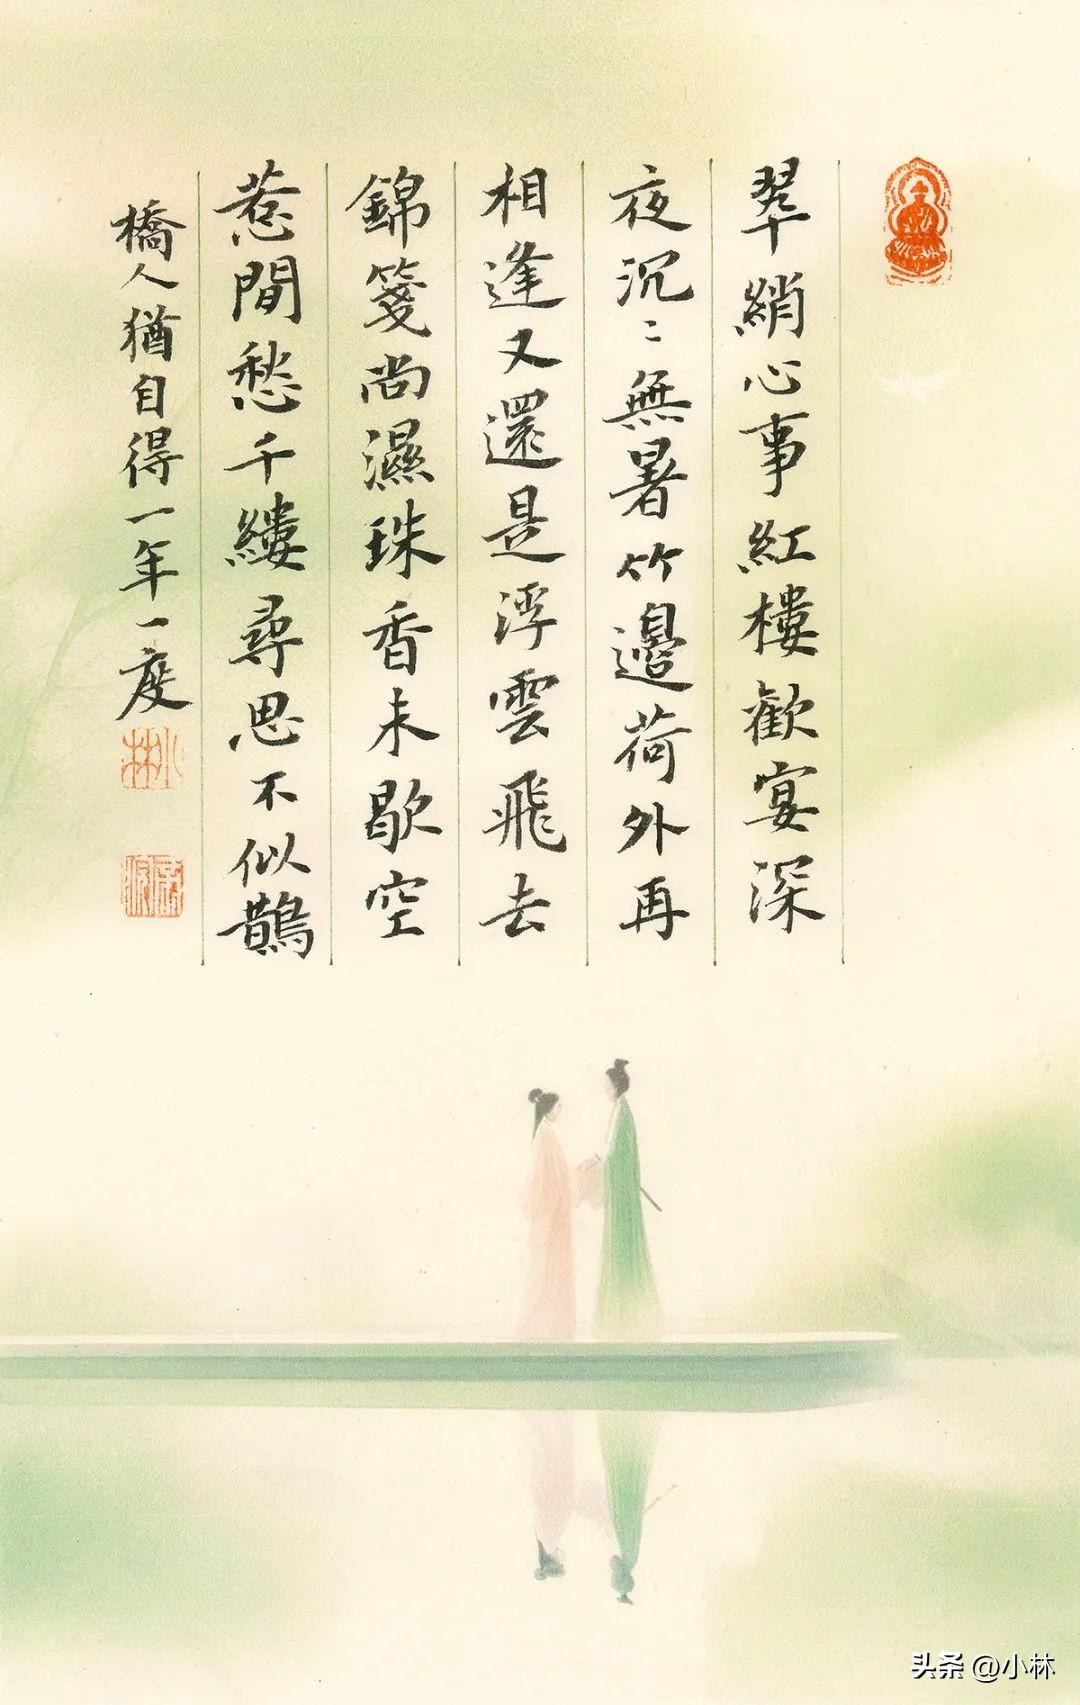 翠綃心事紅樓歡宴深
夜沉〻無暑竹邊荷外再
相逢又還是浮雲飛去
錦箋尚濕珠香未歇空
惹閒愁千縷尋思不似鵲
橋人猶自得一年一度
小林
头条 @小林